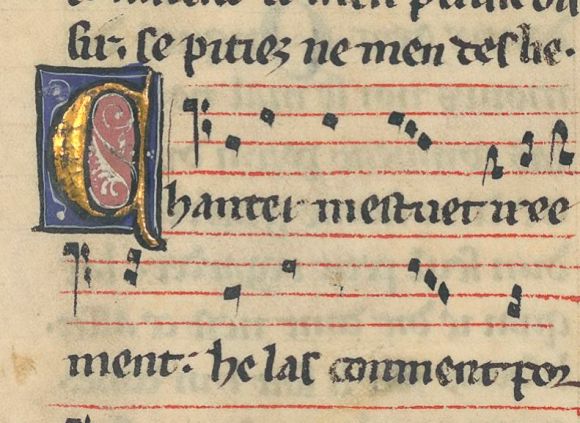 sir; se pitiez ne men deslie.
Chanter mestuet iree
ment. he las conment por